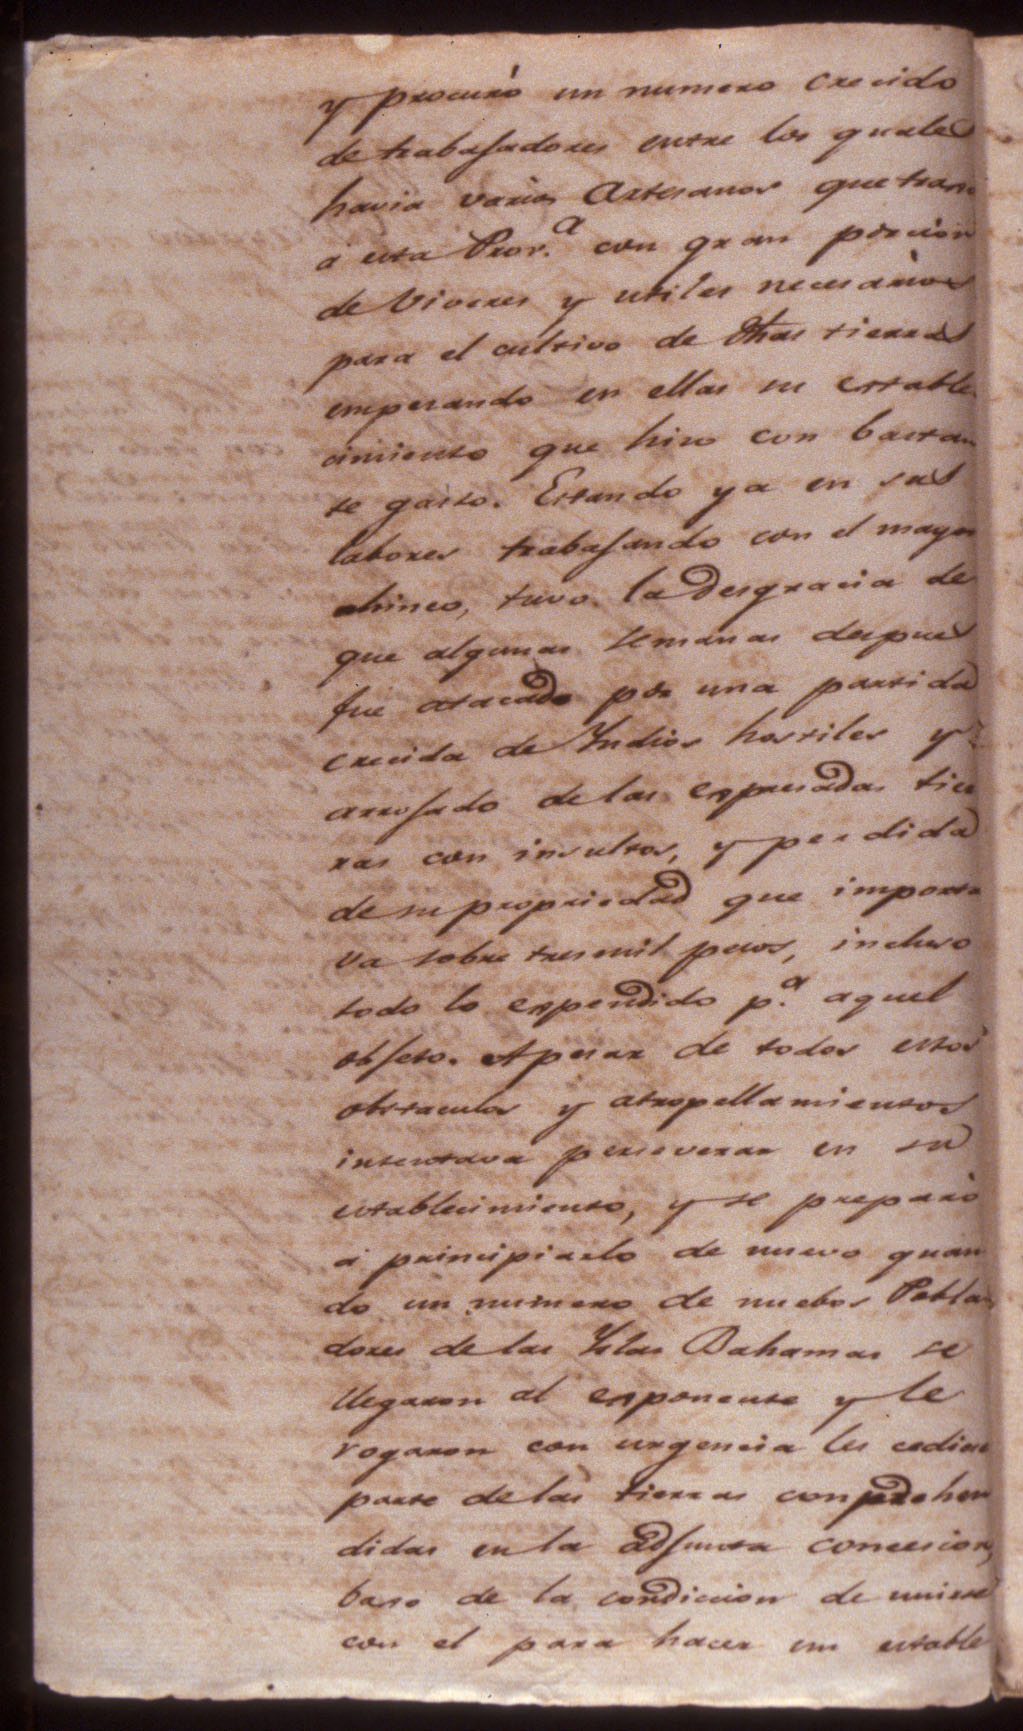 y procuró un numero crecido
de trabajadores entre los quales
havia varios Artesanos que traxo
á esta Prov.ª con gran porcion
de Viveres y utiles necesarios
para el cultivo de dhas tierras
empesando en ellas su estable
cimiento que hiso con bastan
te gasto. Estando ya en sus
labores trabajando con el mayor
ahinco, tuvo la desgracia de
que algunas semanas despues
fue atacado por una partida
crecida de Yndios hostiles y
arrojado de las expresadas tier
ras con insultos, y perdida
de su propriedad que importa
va sobre tres mil pesos, incluso
todo lo expendido p.ª aquel
objeto. Apesar de todos estos
obstaculos y atropellamientos
intentava perseverar en su
establecimiento, y se preparó
á principiarlo de nuevo quan
do un numero de nuebos Pobla
dores de las Yslas Bahamas se
llegaron al exponente y le
rogaron con urgencia les cediese
parte de las tierras comprehen
didas en la adjunta concesion,
baxo de la condiccion de unirse
con el para hacer un estable